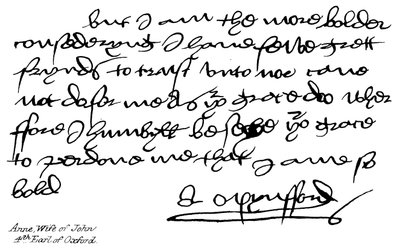 but I am the more bolder
consederyng I have so few grett
frynds to trust unto noe cane
not do for me as yor grace doo Wher
ffore I humbyll be seche yor grace
to perdone me that I ame so
bold
A Oxynfford
Anne, Wife of John
4th Earl of Oxford.